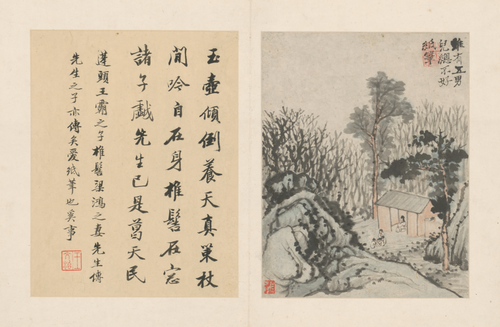 雖有五男
兒總不好
紙筆
玉壺傾倒養天真策杖
閒吟自在身椎髻在窓
諸子戲先生已是葛天民
蓬頭王霸之子椎髻梁鴻之妻先生傳
先生之子亦傳矣愛紙筆也奚事